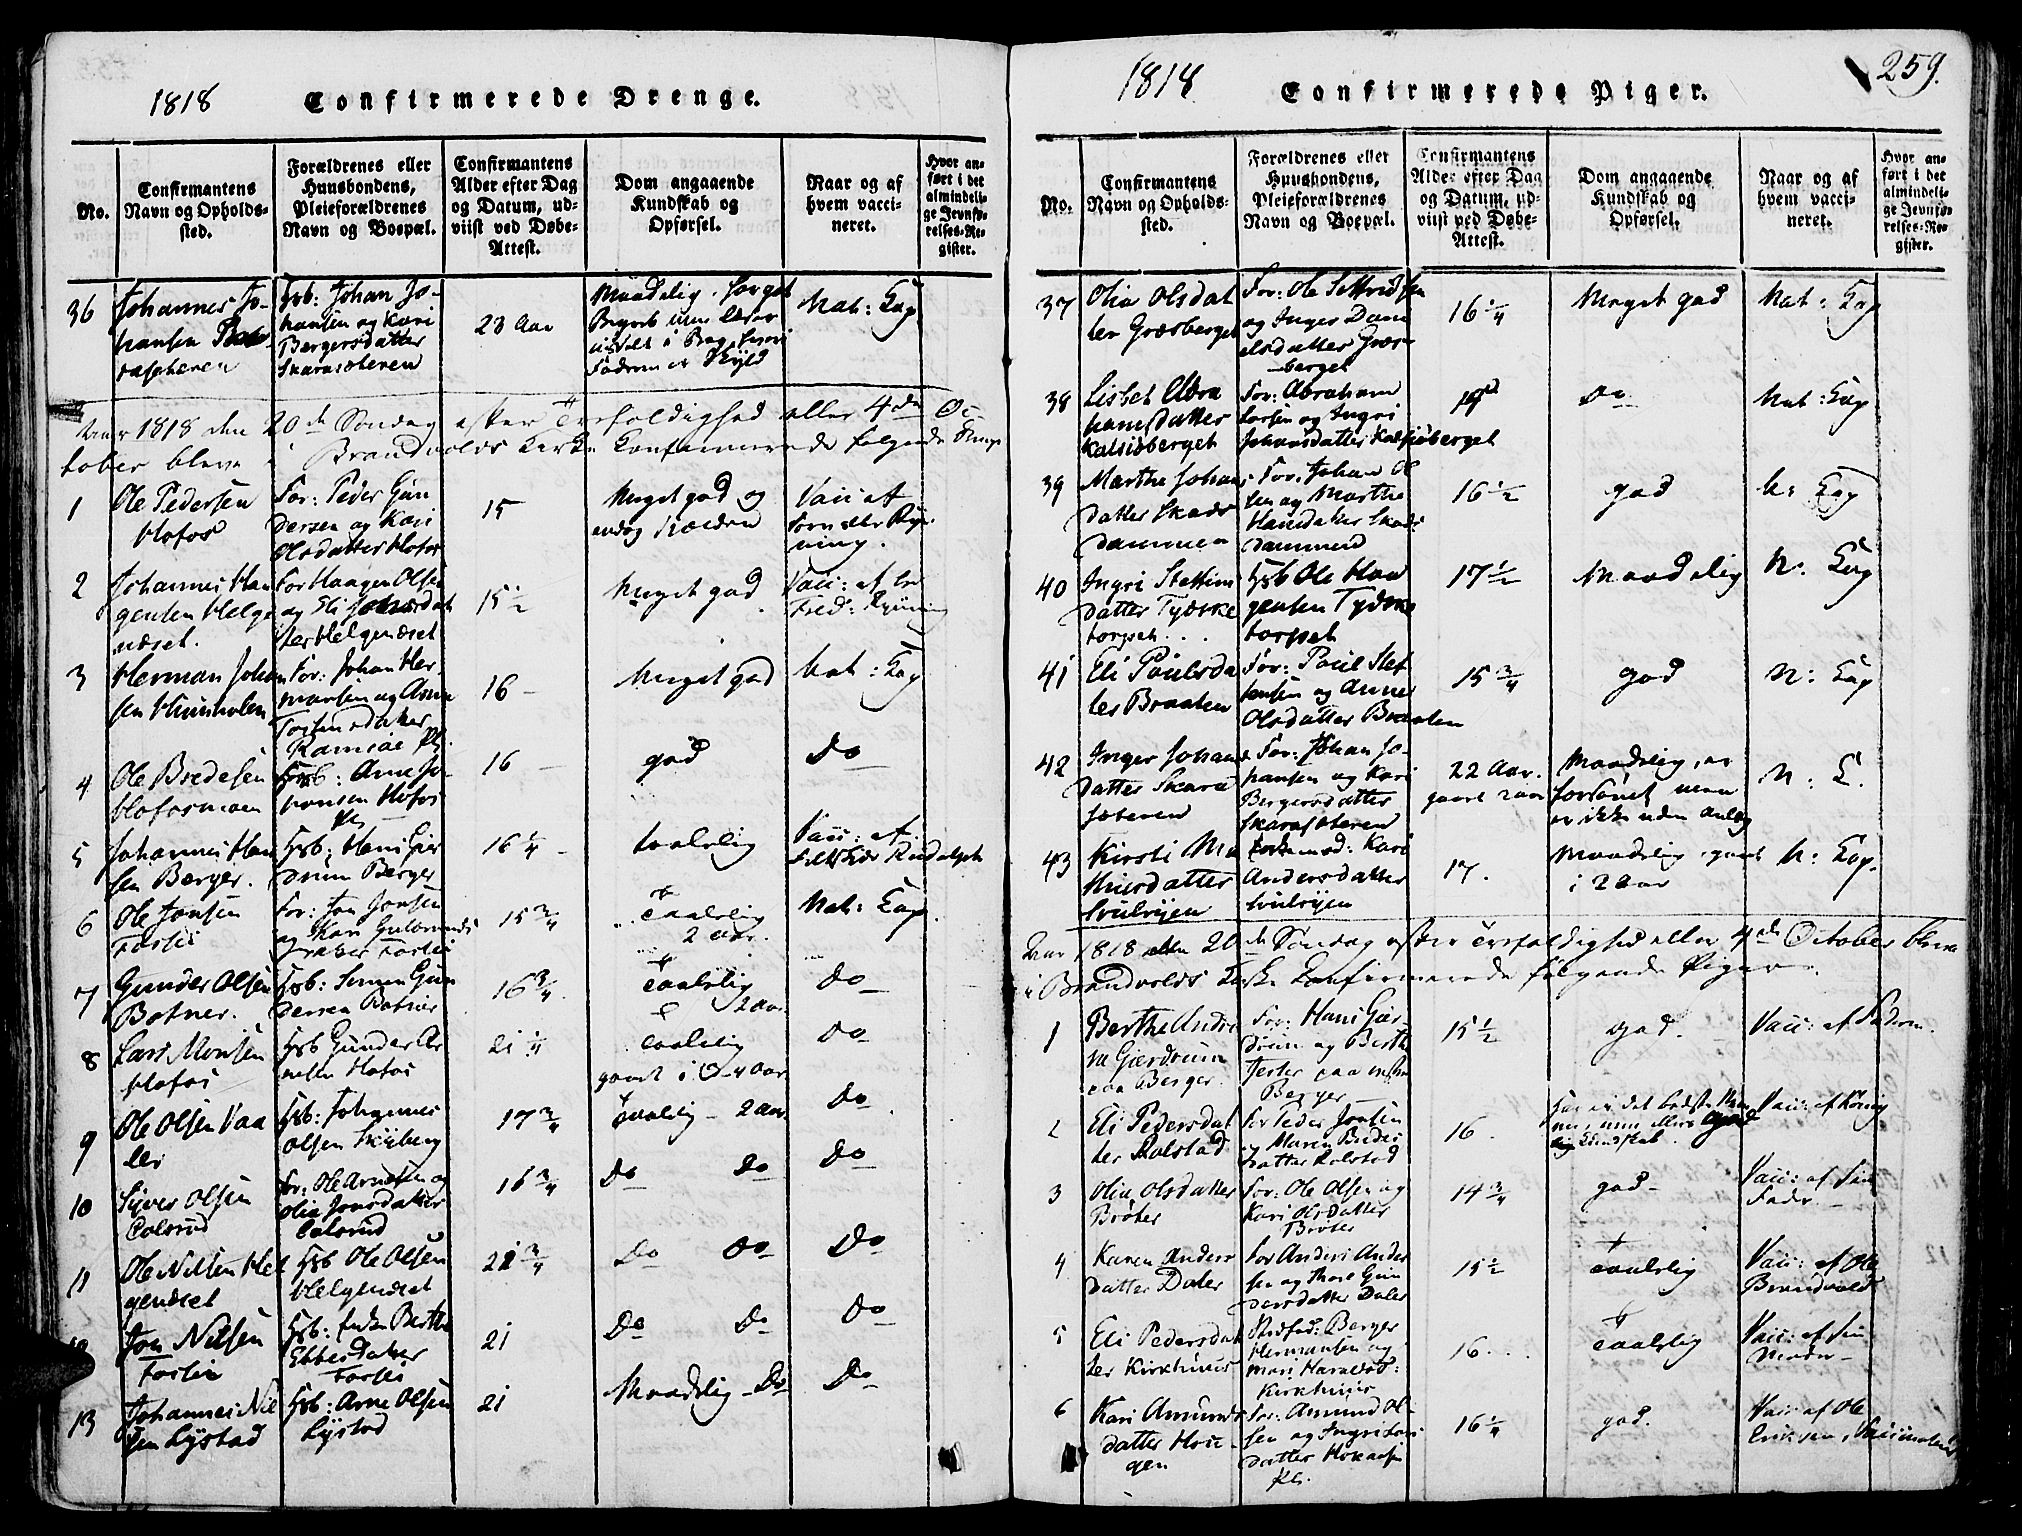 1818
Confirmerede Drenge.
No.
Confirmantens
Navn og Opholds-
sted.
Forældrenes eller
Huusbondens,
Pleieforældrenes
Navn og Boepæl.
Confirmantens
Alder efter Dag
og Datum, ud-
viist ved Døbe-
Attest.
Dom angaaende
Kundskab og
Opførsel.
Naar og af
hvem vacci-
neret.
Hvor an-
ført i det
almindeli-
ge Jevnfø-
relses-Re-
gister.
36
Johannes Jo-
hansen
Hsb: Johan Jo-
hansen og Kari
Bergersdatter
Skarasæteren
23 Aar
Maadelig.
Nat: Cop
Aar 1818 den 20de Søndag efter Trefoldighed eller 4de Oc-
tober bleve i Brandvolds Kirke Confirmerede følgende Drenge
1
Ole Pedersen
Hofos
For: Peder Gun
dersen og Kari
Olsdatter Hofos
15
Meget god og
Vacc: af
2
Johannes Haa
gensen Helge
næset.
For Haagen Olsen
og Eli
ter Helgenæset
15 1/2
Meget god
Vacc: af
3
Herman Johan
sen
For: Johan Her
mansen og Anne
16 –
Meget god
Nat: Cop
4
Ole Bredesen
Hofosmoen
Hsb: Arne Jo-
hansen Hofos
Pl:
16 –
god
Do
5
Johannes Han
sen Berger.
Hsb: Hans Gier
drum Berger
16 1/4 –
taalelig
Vacc: af
6
Ole Jonsen
Forsæt
For: Jon Jonsen
og Kari Gulbrands
15 3/4
Taalelig
2 aar.
Nat: Cop
7
Gunder Olsen
Botner.
Hsb: Simen Gun
dersen Botner
16 3/4.
Taalelig
2 aar
Do
8
Lars Monsen
Hofos
Hsb Gunder Ar
nesen Hofos
21 1/4
Taalelig
gaaet i 3–4 Aar
Do
9
Ole Olsen Vaa
ler
Hsb: Johannes
Olsen Skyberg
17 3/4
Taalelig – 2 aar
Do
10
Siver Olsen
Calsrud
For: Ole Arnesen og
Olia Jonsdatter
Calsrud
16 3/4
Do Do
Do
11
Ole Nilsen Hel
genæset
Hsb Ole Olsen
Helgenæset
21 3/4
Do Do
Do
Jon Nilsen
Hsb: Enken Berthe
Ebbesdatter
21
Do Do
Do
13
Johannes Nil
sen Lystad
Hsb: Arne Olsen
Lystad
21
Maadelig – Do
Do
1818.
Confirmerede Piger.
259.
No.
Confirmantens
Navn og Opholds-
sted.
Forældrenes eller
Huusbondens,
Pleieforældrenes
Navn og Boepæl.
Confirmantens
Alder efter Dag
og Datum, ud-
viist ved Døbe-
Attest.
Dom angaaende
Kundskab og
Opførsel.
Naar og af
hvem vacci-
neret.
Hvor an-
ført i det
almindeli-
ge Jevnfø-
relses-Re-
gister.
37
Olia Olsdat
ter Græsberget
For: Ole
og Inger Dani
elsdatter Græs-
berget
16 1/4
Meget god
Nat: Cop
38
Lisbet Abra
hamsdatter
Kalsiøberget
For: Abraham
Larsen og Ingri
Johansdatter Kalsiøberget
Do
Nat: Cop
39
Marthe Johans
datter Skads
dammen
For: Johan Ol
sen og Marthe
Hansdatter Skads
dammen
16 1/2
god
N: Cop
40
Ingri Steffens
datter Tydske
torpet...
Hsb Ole Haa
gensen Tydske
torpet
17 1/2
Maadelig
N: Cop
41
Eli Poulsdat
ter Braaten
For: Poul Stef
fensen og Anne
Olsdatter Braaten
15 3/4
god
N: Cop
42
Inger Johans
datter Skara
sæteren
For: Johan Jo-
hansen og Kari
Bergersdatter
Skarasæteren
22 Aar.
gaaet 2 aar
Maadelig, er
men
er ikke uden Anlæg
N: C.
43
Kirsti Ma
thiesdatter
Kari
Andersdatter
17.
Maadelig, gaaet
i 2 Aar
N: Cop.
Aar 1818 den 20de Søndag efter Trefoldighed eller 4de October bleve
i Brandvolds Kirke Confirmerede følgende Piger.
1
Berthe Andre
a Gierdrum
paa Berger.
For: Hans Gier-
drum og Berthe
Berger
15 1/2
god.
Vacc: af Faderen.
2
Eli Pedersdat
ter Rolstad
For Peder Jonsen
og Maren Peders
datter Rolstad
16.
Vacc: af
3
Olia Olsdatter
Brøter
For: Ole Olsen og
Kari Olsdatter
Brøter
14 3/4
god –
Vacc: af Sin
Fader –
4
Karen Anders
datter Daler
For Anders Ander
sen og Thore Gun
dersdatter Daler
15 1/2
Taalelig
Vacc: af Ole
Brandvold
5
Eli Pedersdat
ter Kirkhuus
Stedfad: Berger
Hermansen og
Mari Haraldsd:
Kirkhuus
16...
Taalelig
Vacc: af Sin
Moder –
6
Kari Amunds
datter Hou-
gen
For: Amund Ol
sen og Ingri Lars
datter
Pl:
16 1/4
god.
Vacc: af Ole
Eriksen,